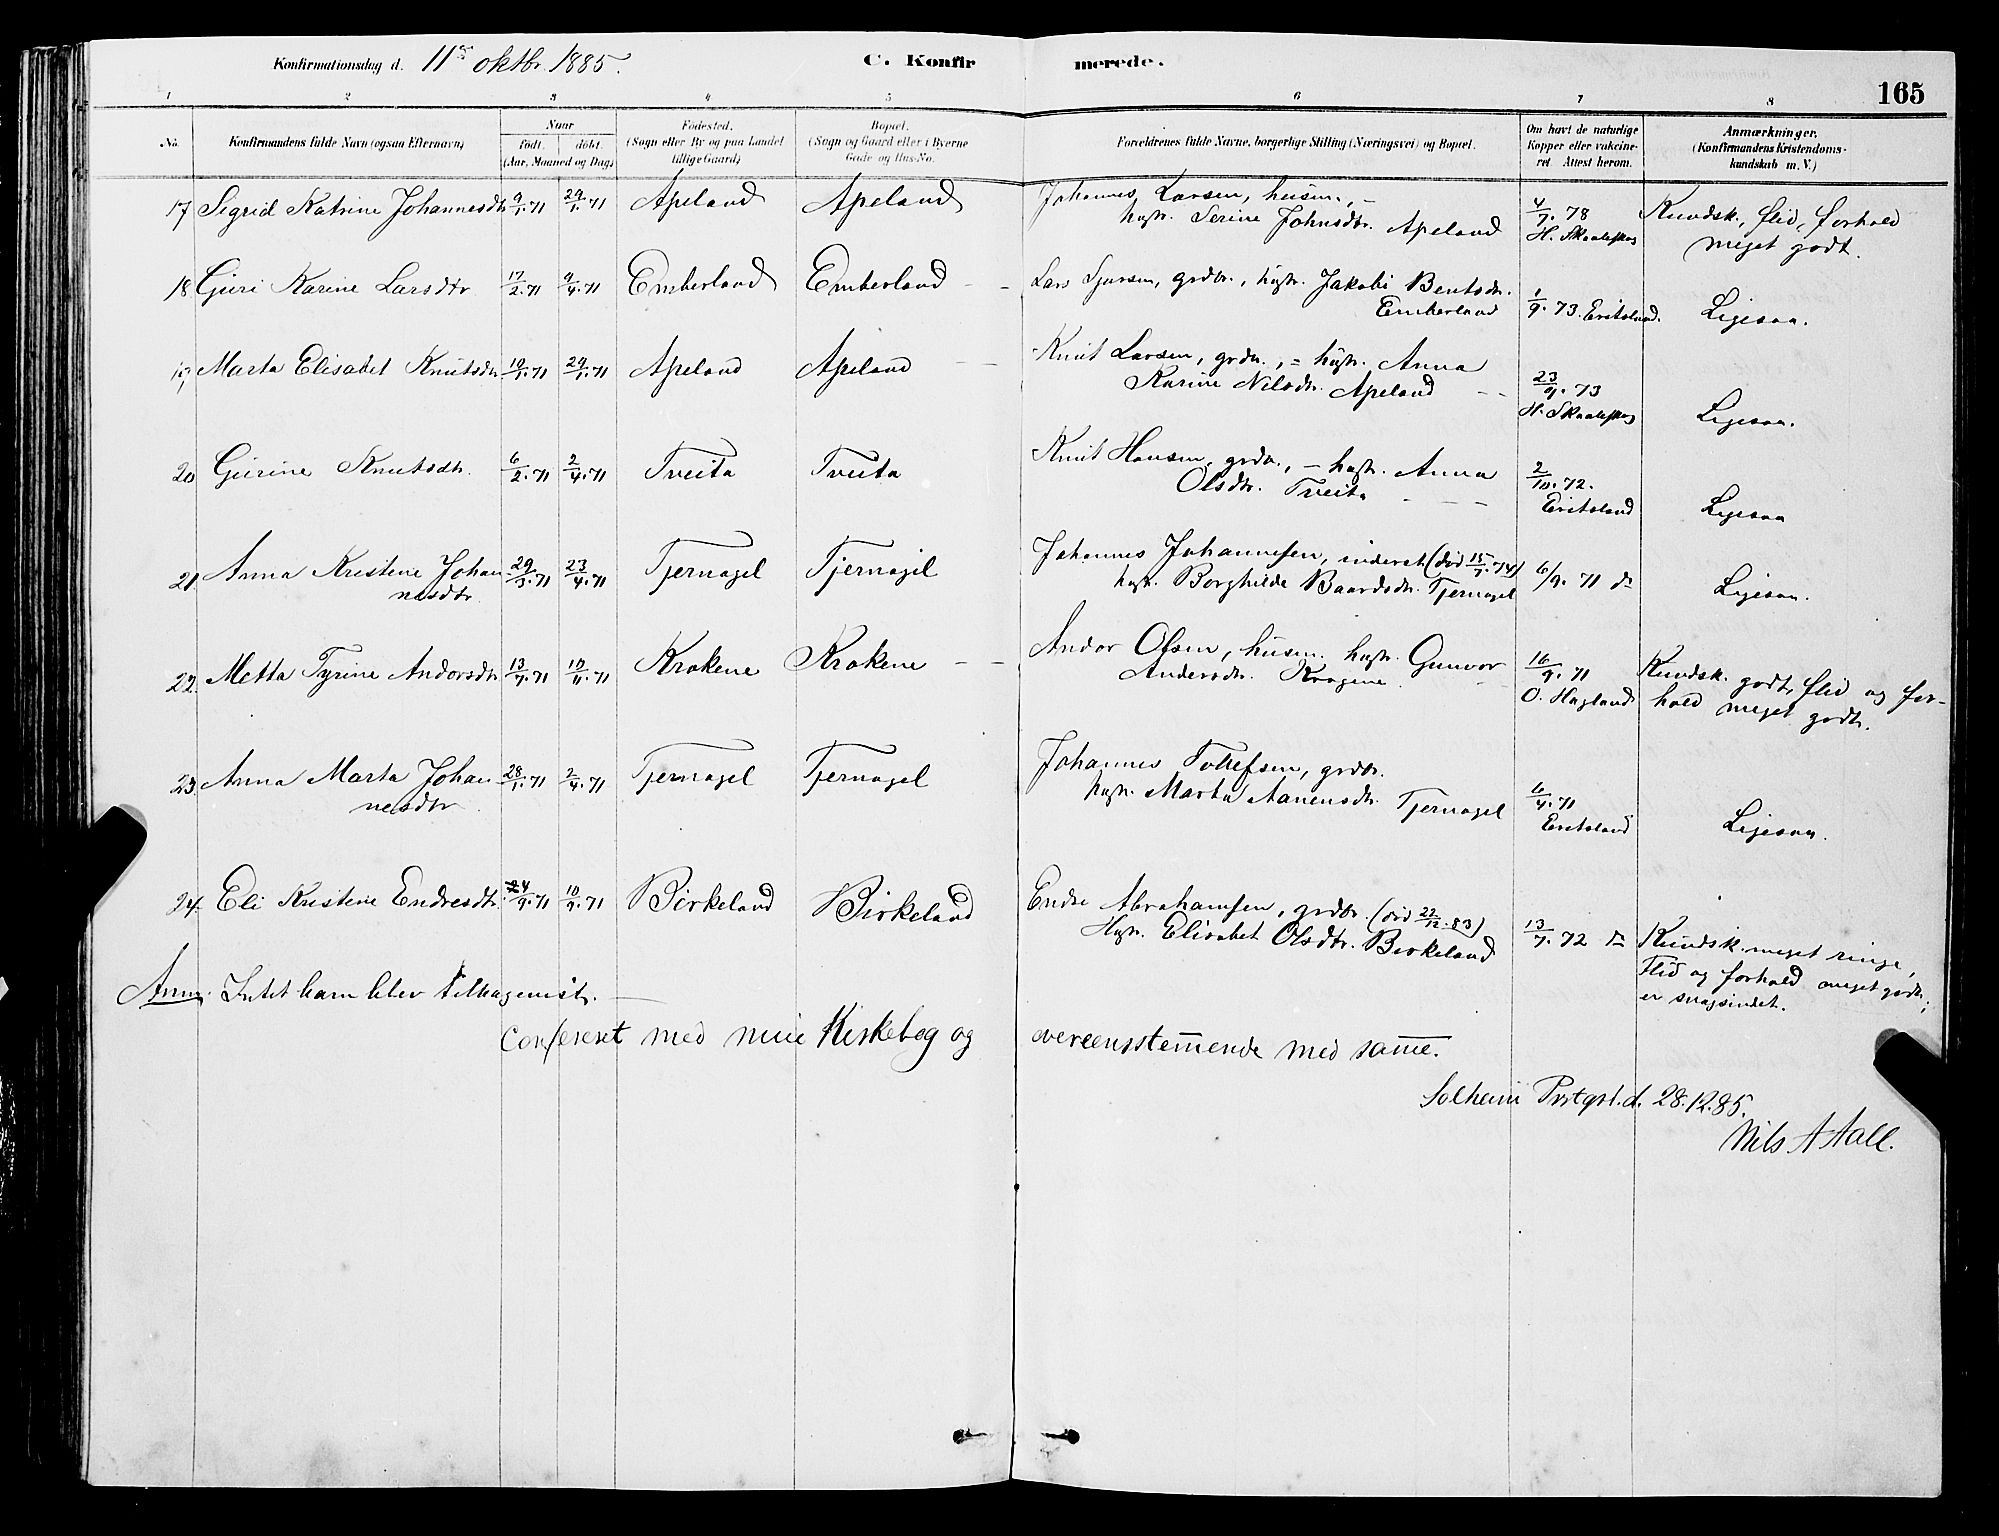 Konfirmationsdag d. 11te oktbr. 1885. C. Konfirmerede. 165
1 2 3 4 5 6 7 8
No. Konfirmandens fulde Navn (ogsaa Efternavn) Naar født. døbt. (Aar, Maaned og Dag) Fødested. (Sogn eller By og paa Landet tillige Gaard) Bopæl. (Sogn og Gaard eller i Byerne Gade og Hus-No. Forældrenes fulde Navne, borgerlige Stilling (Næringsvei) og Bopæl. Om havt de naturlige Kopper eller vakcineret. Attest herom. Anmærkninger. (Konfirmandens Kristendomskundskab m. V.)
17 Sigrid Katrine Johannesdtr 9/1.71 29/1.71 Apeland Apeland Johannes Larsen, husm., - hustr. Serine Johnsdtr. Apeland 4/7.78 H. Kundsk., flid, forhold meget godt.
18 Guri Karine Larsdtr 17/2.71 9/4.71 Emberland Emberland Lars Sjursen, grdbr., hustr. Jakobi Bentsdtr. Emberland 1/9.73. Eritsland. Ligesaa.
19 Marta Elisabet Knutsdtr 10/1.71 29/1.71 Apeland Apeland Knut Larsen, grdbr., - hustr. Anna Karine Nilsdtr. Apeland 23/9.73 H. Ligesaa.
20 Gurine Knutsdtr. 6/2.71 2/4.71 Tveita Tveita Knut Hansen, grdbr., - hustr. Anna Olsdtr. Tveita 2/10.72. Eritsland Ligesaa
21 Anna Kristine Johannesdtr. 29/3.71 23/4.71 Tjernagel Tjernagel Johannes Johannesen, inderst (død 15/7.74) hustr. Borghilde Baardsdtr. Tjernagel 6/9.71 do Ligesaa.
22 Metta Tyrine Andorsdtr 13/9.71 19/11.71 Krokene Krokene Andor Olsen, husm. hustr. Gunvor Andersdtr. Krogene. 16/9.71 O. Hagland Kundsk. godt, flid og forhold meget godt.
23 Anna Marta Johannesdtr 28/1.71 2/4.71 Tjernagel Tjernagel Johannes Tollefsen, grdbr. hustr. Marta Aanensdtr. Tjernagel 6/4.71 Eritsland Ligesaa.
24 Eli Kristine Endresdtr. 4/9.71 10/9.71 Birkeland Birkeland Endre Abrahamsen, grdbr. (død 22/12.83) Hustr. Elisabet Olsdtr. Birkeland 13/7.72 do Kundsk. meget ringe, Flid og forhold meget godt; er svagsindet.
Anm. Intet barn blev tilbagevist.
Confereret med min Kirkebog og overeensstemmende med samme.
Solheim Prstgrd. d. 28.12.85.
Nils A Aall.